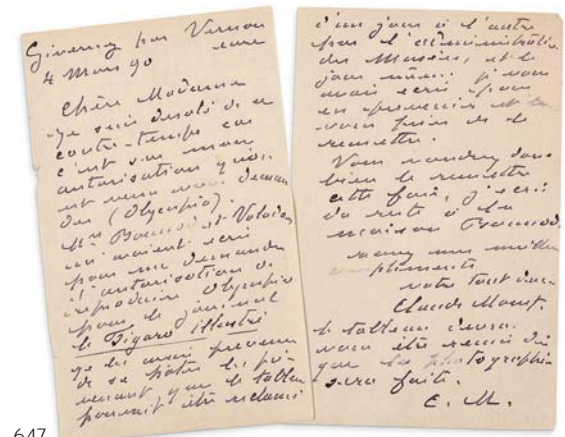 Giverny par Vernon
eure
4 Mars 90
Chère Madame
Je suis désolé de ce
contre-temps car
c'est sur mon
autorisation qu'on
est venu vous deman
der (Olympia).
Mrs Boussod et Valadon
m'avaient écrit
pour me demander
l'autorisation de
reproduire Olympia
pour le journal
le Figaro illustré
je les avais prévenu
de se hâter les pré
venant que le tableau
pouvait être réclamé
d'un jour à l'autre
par l'administration
des Musées, et le
jour même je vous
avais écrit pour
en prévenir et
vous prier de le
remettre.
Vous voudrez donc
bien le remettre
cette fois, j'écris
de suite à la
maison Boussod.
mille
compliments
votre tout dévoué
Claude Monet.
le tableau devra
vous être remis dès
que la photographie
sera faite.
C. M.
647